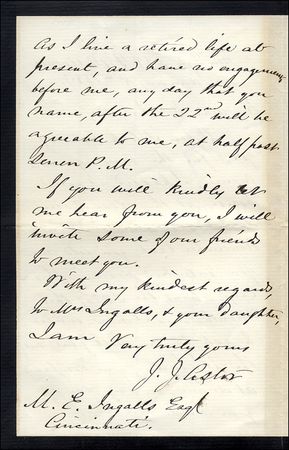 As I live a retired life at
present, and have no engagement
before me, any day that you
name, after the 22nd will be
agreeable to me, at half past
Seven P.M.
If you will kindly let
me hear from you, I will
invite some of our friends
to meet you.
With my kindest regards,
to Mrs Ingalls, & your daughter,
I am Very truly yours
J. J. Astor
M. E. Ingalls Esqr
Cincinnati.